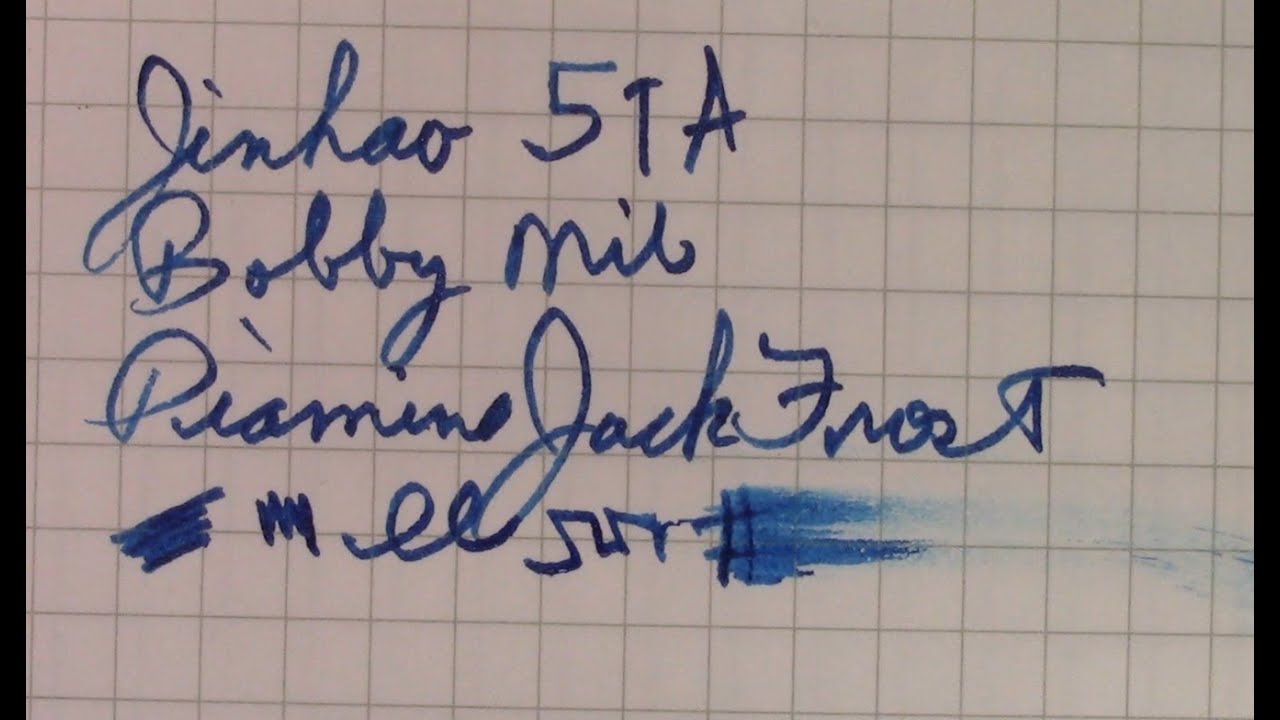 Jinhao 51A
Bobby nib
Diamine Jack Frost